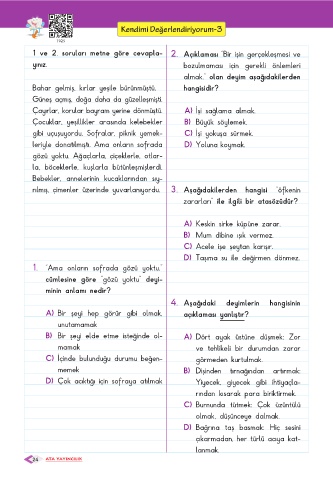 Kendimi Değerlendiriyorum-3
1 ve 2. soruları metne göre cevapla-
yınız.
Bahar gelmiş, kırlar yeşile bürünmüştü.
Güneş açmış, doğa daha da güzelleşmişti.
Çayırlar, kırdalar bayram yerine dönmüştü.
Çocuklar, yeşillikler arasında kelebekler
gibi uçuşuyordu. Sofralar, piknik yemek-
leriyle donatılmıştı. Ama onların sofrada
gözü yoktu. Ağaçlarla, çiçeklerle, otlar-
la, böceklerle, kuşlarla bütünleşmişlerdi.
Bebekler, annelerinin kucaklarından sıy-
rılmış, çimenler üzerinde yuvarlanıyordu.
1. "Ama onların sofrada gözü yoktu."
cümlesine göre "gözü yoktu" deyi-
minin anlamı nedir?
A) Bir şeyi hep görür gibi olmak,
unutamamak
B) Bir şeyi elde etme isteğinde ol-
mamak
C) İçinde bulunduğu durumu beğen-
memek
D) Çok acıktığı için sofraya atılmak
2. Açıklaması "Bir işin gerçekleşmesi ve
bozulmaması için gerekli önlemleri
almak." olan deyim aşağıdakilerden
hangisidir?
A) İşi sağlama almak.
B) Büyük söylemek.
C) İşi yokuşa sürmek.
D) Yoluna koymak.
3. Aşağıdakilerden hangisi "öfkenin
zararları" ile ilgili bir atasözüdür?
A) Keskin sirke küpüne zarar.
B) Mum dibine ışık vermez.
C) Acele işe şeytan karışır.
D) Taşıma su ile değirmen dönmez.
4. Aşağıdaki deyimlerin hangisinin
açıklaması yanlıştır?
A) Dört ayak üstüne düşmek: Zor
ve tehlikeli bir durumdan zarar
görmeden kurtulmak.
B) Dişinden tırnağından artırmak:
Yiyecek, giyecek gibi ihtiyaçla-
rından kısarak para biriktirmek.
C) Burnunda tütmek: Çok üzüntülü
olmak, düşünceye dalmak.
D) Bağrına taş basmak: Hiç sesini
çıkarmadan, her türlü acıya kat-
lanmak.
24 ATA YAYINCILIK